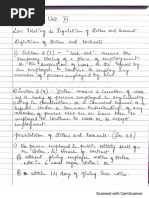 Unit VI
Law Relating to Regulation of Strikes and Lockouts
Definition of Strikes and Lockouts
1) Section 2 (l) - "Lock-out" means the
temporary closing of a place of employment
or the suspension of work, or the refusal by
an employer to continue to employ any
number of persons employed by him
2) Section 2 (q) means a cessation of work
by a body of persons employed in any industry
acting in combination or a concerted refusal or a
refusal under a common understanding of
any number of persons who are or have
been so employed to continue to work or
to accept employment
Prohibition of Strikes and Lockouts (Sec 22)
1) No person employed in public utility
service shall go on strike in breach of contract
without giving employer notice of strike
within
within 14 days of giving such notice
Scanned with CamScanner